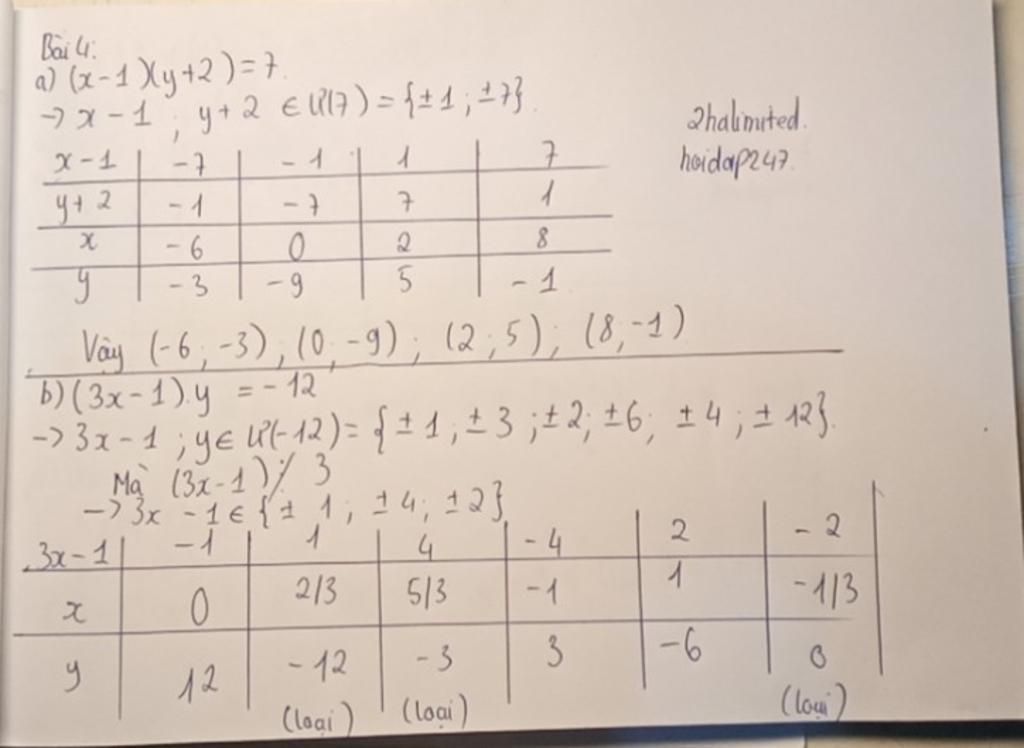 Bài 4:
a) (x-1)(y+2)=7.
→ x-1 ; y+2 ∈ Ư(7) = {±1 ; ±7}.
2halimited.
hoidap247.
x-1 | -7 | -1 | 1 | 7
y+2 | -1 | -7 | 7 | 1
x | -6 | 0 | 2 | 8
y | -3 | -9 | 5 | -1
Vậy (-6 ; -3) ; (0 ; -9) ; (2 ; 5) ; (8 ; -1)
b) (3x-1).y = -12
→ 3x-1 ; y ∈ Ư(-12) = {±1 ; ±3 ; ±2 ; ±6 ; ±4 ; ±12}.
Mà (3x-1) ⋮̸ 3
→ 3x-1 ∈ {±1 ; ±4 ; ±2}
3x-1 | -1 | 1 | 4 | -4 | 2 | -2
x | 0 | 2/3 | 5/3 | -1 | 1 | -1/3
y | 12 | -12 | -3 | 3 | -6 |
(loại) (loại) (loại)